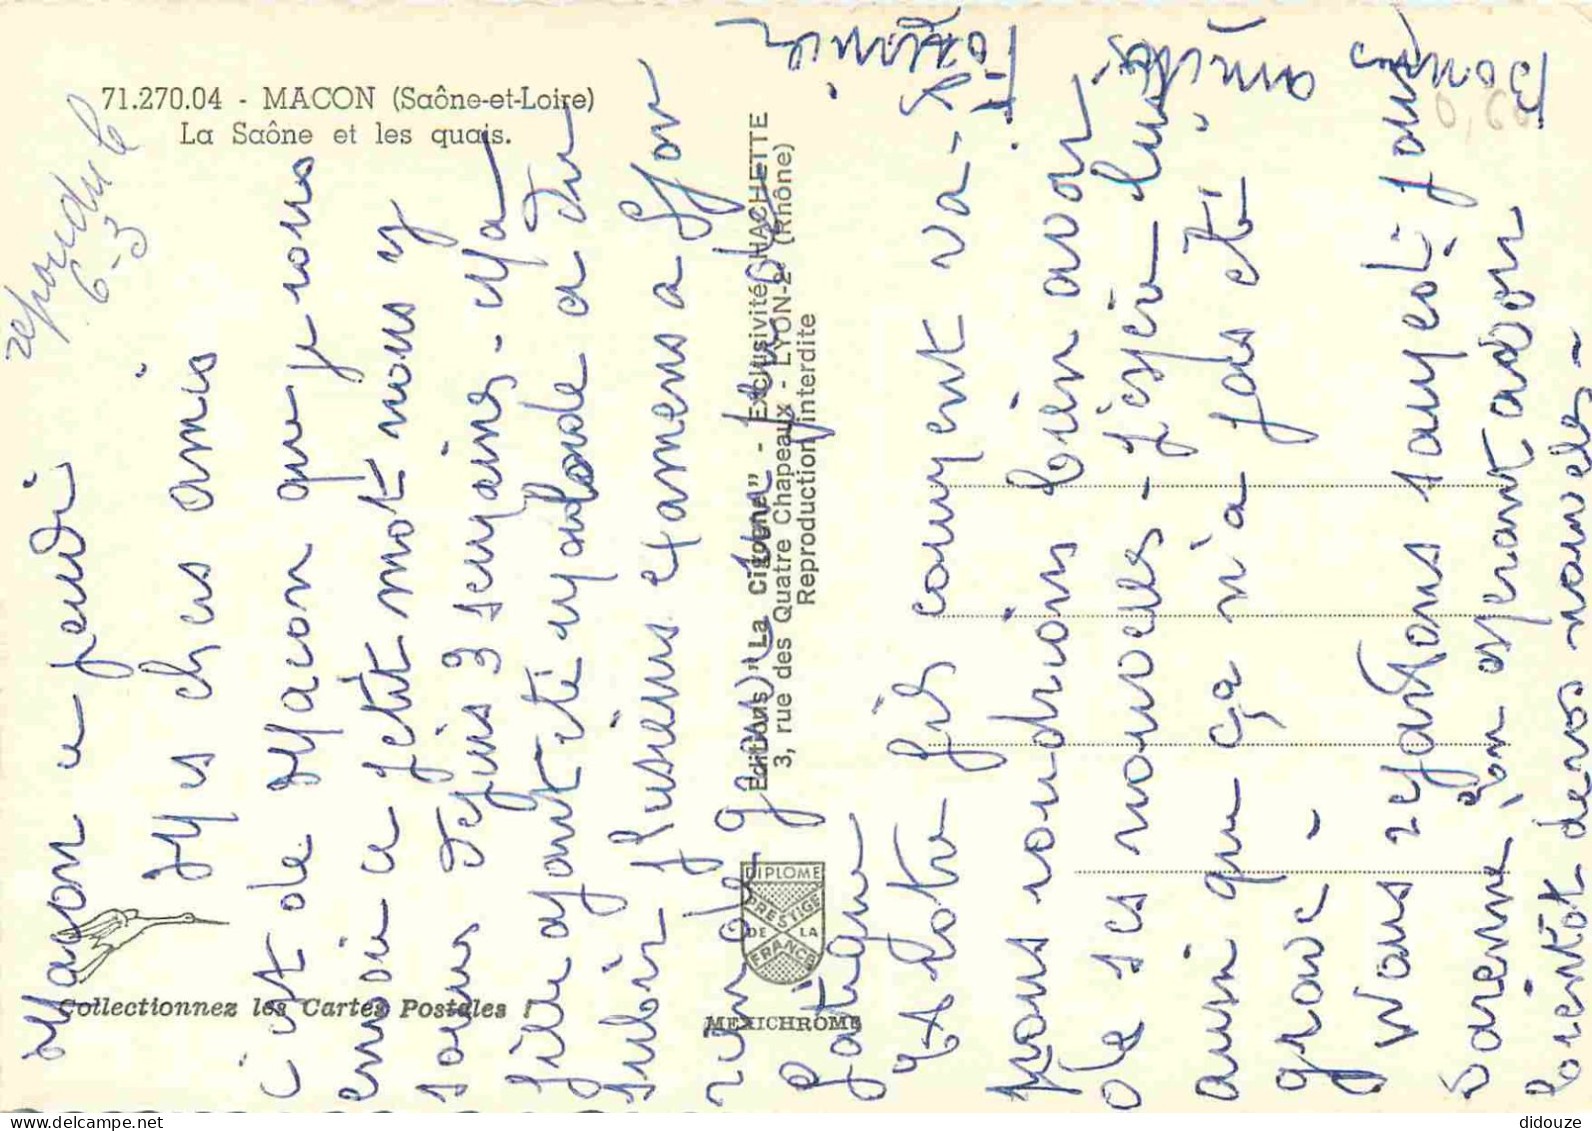 71.270.04 - MACON (Saône-et-Loire)
La Saône et les quais.
repondu le
6-3
Macon ce jeudi
Mes chers amis
c'est de Macon que je vous
envoie ce petit mot nous y
sommes depuis 3 semaines - Ma
fille ayant été malade a du
subir plusieurs examens a
grande
fatigue
Votre fils comment va-
nous voudrions bien avoir
de ses nouvelles - j'espère
aussi que ça n'a pas été
grave -
Nous repartons samedi pour
Varenne, en esperant avoir
bientot de vos nouvelles -
Bonnes
amitiés
Editions "La Cigogne" - Exclusivité HACHETTE
3, rue des Quatre Chapeaux - LYON-2e (Rhône)
Reproduction interdite
DIPLOME
PRESTIGE
DE LA
FRANCE
MEXICHROME
Collectionnez les Cartes Postales !
didouze